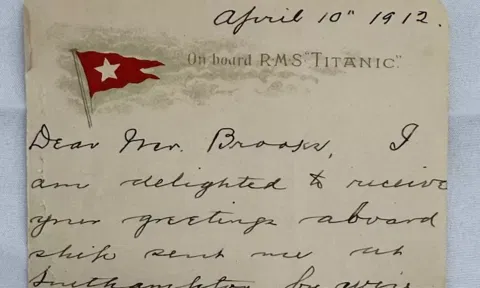 April 10th 1912.
On board R.M.S "TITANIC".
Dear Mr. Brooks, I
am delighted to receive
your greetings aboard
ship sent me at
Southampton by wire